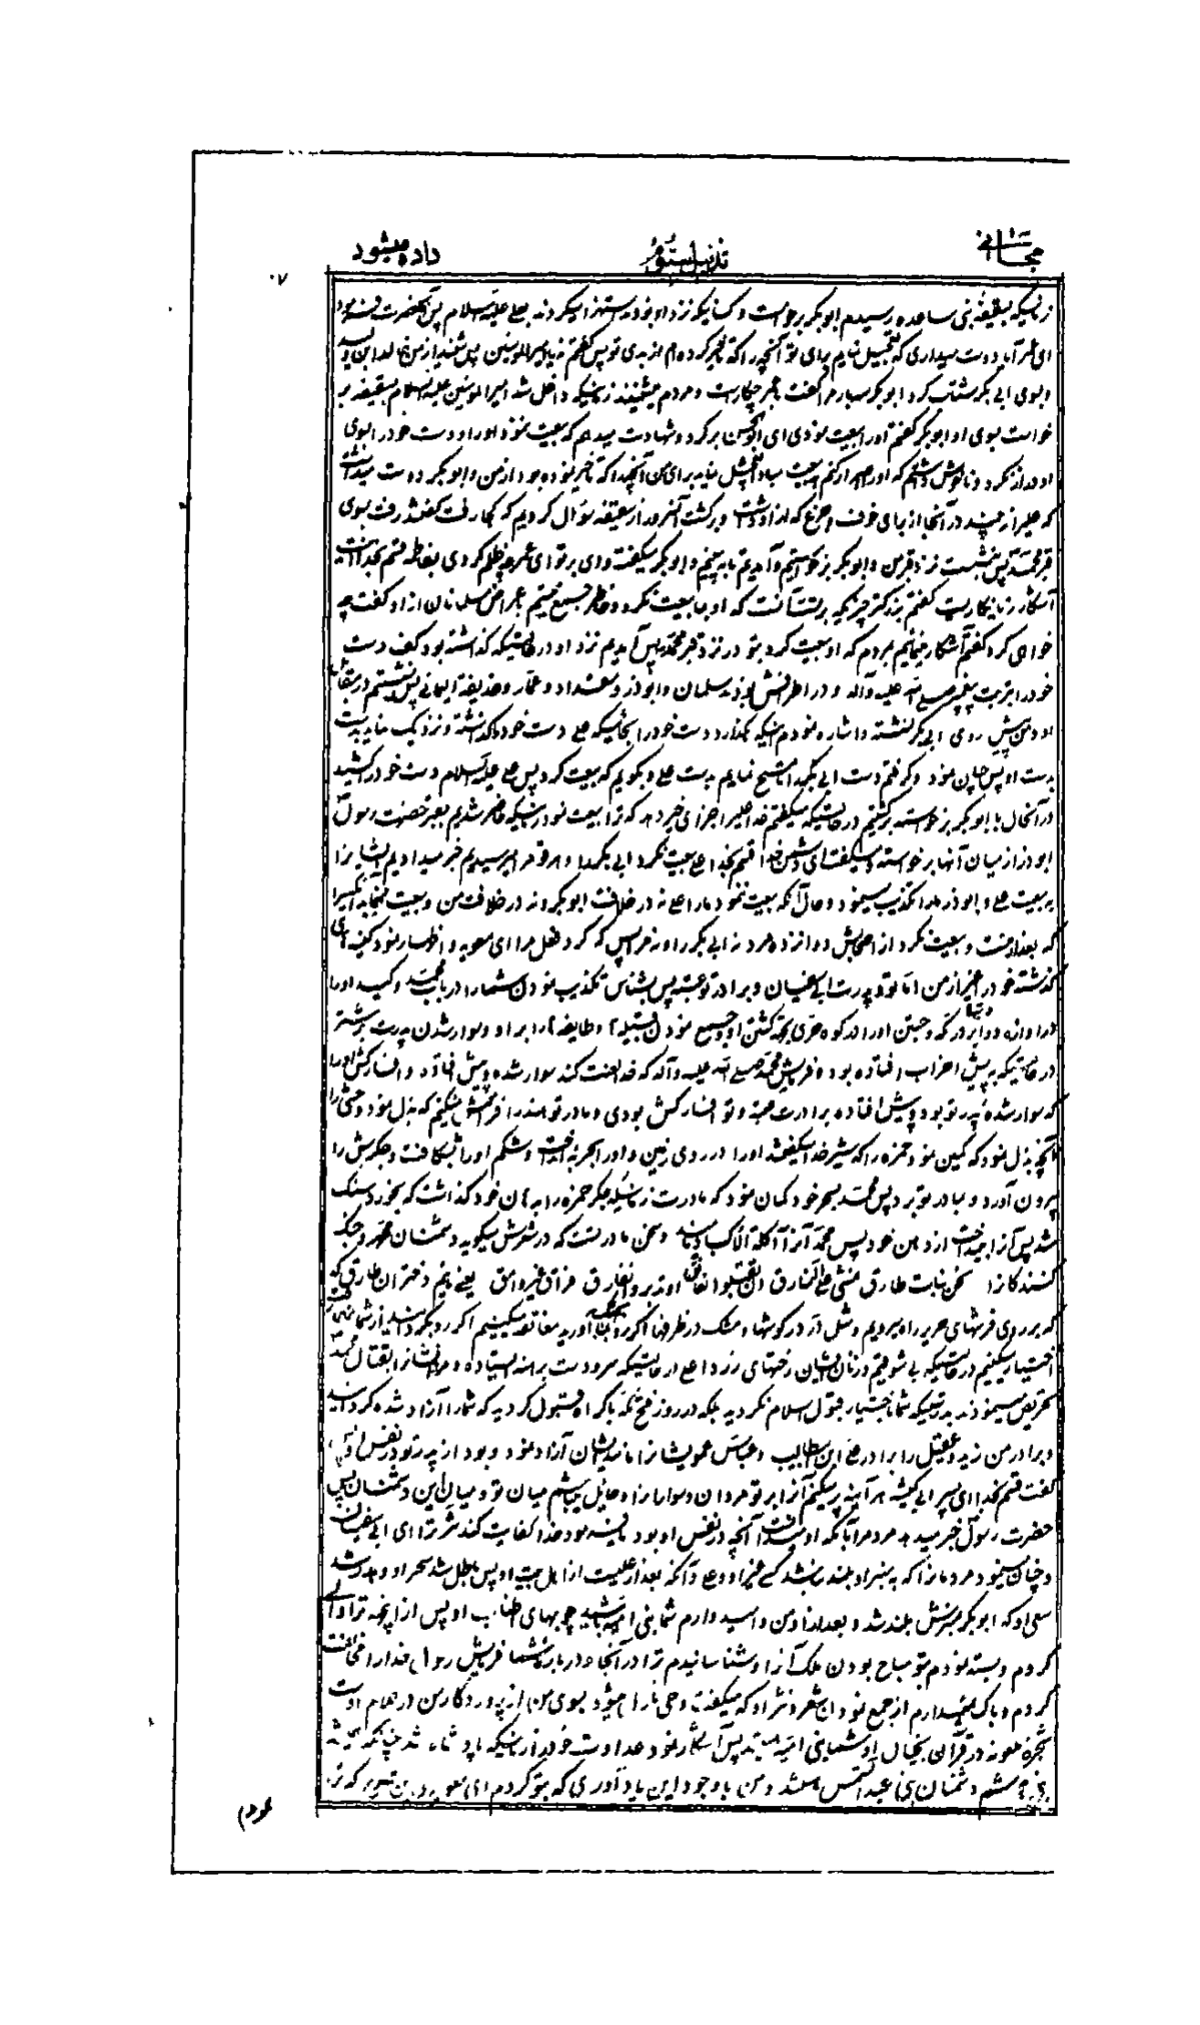 مجانی
تذییل ستور
داده میشود
۷۰
زمانیکه بسقیفه بنی ساعده رسیدم ابوبکر برخواست و کسانیکه نزد او بودند استهزا میکردند بعلی علیه السلام پس آنحضرت فرمود
ای عمر آیا دوست میداری که تعجیل نمایم برای تو آنچه را که تاخیر کرده ام از بدی تو پس گفتم نه یا امیرالمومنین پس شنید از من خالد ابن ولید
و بسوی ابی بکر شتاب کرد ابوبکر سه بار مرا گفت عمر چکار است و مردم میشنیدند زمانیکه داخل شد امیرالمومنین علیه السلام بسقیفه بر
خواست بسوی او ابوبکر گفتم اورا بیعت نمودی ای ابوالحسن برگرد و شهادت میدهم که بیعت ننمود اورا و دست خود را بسوی
او دراز نکرد و ناخوش داشتم که اورا اصرار کنم به بیعت مبادا تعجیل نماید برای من آنچه را که تاخیر نموده بود از من و ابوبکر دوست میداشت
که علی را نه بیند در آنجا از برای خوف و جزع که از او داشت و برگشت آنمرد از سقیفه سؤال کردیم که کجا رفت گفتند رفت بسوی
قبر محمد پس نشست نزد قبر من و ابوبکر برخواستیم و آمدیم تا به بینیم و ابوبکر میگفت وای بر تو ای عمر چه ظلم کردی بفاطمه قسم بخدا اینست
آشکار زیانکاریت گفتم بزرگتر چیزیکه بر تست آنست که او بما بیعت نکرد و خاطر جمع نیستیم باعراض مسلمانان از او گفت چه
خواهی کرد گفتم آشکار مینمائیم بمردم که او بیعت کرد بتو در نزد قبر محمد پس آمدیم نزد او در حالتیکه گذاشته بود کف دست
خود را بتربت پیغمبر صلی الله علیه و آله و در اطرافش بودند سلمان و ابوذر و مقداد و عمار و حذیفة الیمانی پس نشستم در مقابل
او و من پیش روی ابی بکر نشسته و اشاره نمودم باینکه بگذارد دست خود را بجائیکه علی دست خود را گذاشته و نزدیک نماید دست
بدست او پس چنان نمود و گرفتم دست ابی بکر را تا مسح نمایم بدست علی و بگویم که بیعت کرد پس علی علیه السلام دست خود را کشید
در آنحال با ابوبکر برخواسته برگشتیم در حالتیکه میگفتم خدا علی را جزای خیر دهد که ترا بیعت نمود زمانیکه حاضر شدیم بقبر حضرت رسول
ابوذر از میان آنها برخواسته و میگفت ای دشمن خدا قسم بخدا علی بیعت نکرد ابی بکر را و هر وقت بهر قوم میرسیدیم خبر میدادیم ایشانرا
به بیعت علی و ابوذر ما را تکذیب مینمود و حال آنکه بیعت ننمود ما را علی نه در خلافت ابوبکر و نه در خلافت من و بیعت نمینماید کسیرا
که بعد از منست و بیعت نکرد از اصحابش دوازده مرد نه ابی بکر را و نه مرا پس که کرد فعل مرا ای معویه و اظهار نمود کینه های
گذشته خود را غیر از من اما تو و پدرت ابی سفیان و برادرت عتبه پس بشناس تکذیب نمودن شما را در باب محمد و کید اورا
در اوایل دورانها در مکه و جستن اورا در کوه حری بجهت کشتن او و جمیع نمودن قبیله ها و طایفه ها را بر او و سوار شدن پدرت بر شتر
در حالتیکه به پیش احزاب افتاده بود و فرمایش محمد صلی الله علیه و آله که خدا لعنت کند سوار شده و پیش افتاده و افسارکش اورا
که سوار شده پدر تو بود و پیش افتاده برادرت عتبه و تو افسارکش بودی و مادر تو هند را فراموش نمیکنم که بذل نمود وحشی را
آنچه بذل نمود که کمین نمود حمزه را که شیر خدا میگفتند اورا در روی زمین و اورا بحربه انداخت و شکم اورا شکافت و جگرش را
بیرون آورد و بمادر تو برد پس محمد بسحر خود گمان نمود که مادرت زمانیکه جگر حمزه را بدهان خود گذاشت که بخورد سنگ
شد پس آنرا بینداخت از دهن خود پس محمد آنرا آکلة الاکباد نامید و سخن مادر تست که در شعرش میگوید دشمنان محمد و جنگ
کنندگانرا نحن بنات طارق نمشی علی النمارق ان تقبلوا نعانق او تدبروا نفارق فراق غیر وامق یعنی مائیم دختران طارق که
که بر روی فرشهای حریر راه میرویم و مثل در در گوشها و مشک در ظرفها اگر رو بجنگ آورید معانقه میکنیم اگر رو بگردانید از شما مفارقت
اختیار میکنیم در حالتیکه بی شوقیم و زنان ایشان رختهای زرد اعلی در حالتیکه سر و دست برهنه ایستاده و مردانشانرا بقتال محمد
تحریص مینمودند بدرستیکه شما باختیار قبول اسلام نکردید بلکه در روز فتح مکه باکراه قبول کردید که شما را آزاد شده گردانید
و برادر من زید و عقیل را برادر علی ابن ابیطالب و عباس عمویشانرا مانند ایشان آزاد نمود و بود از پدر تو در نفس او پس
گفت قسم بخدا ای پسر ابی کبشه هر آینه پر میکنم آنرا بر تو مردان و سوارانرا و حایل میباشم میان تو و میان این دشمنان پس
حضرت رسول خبر میدهد مردم را بآنکه او دانست آنچه در نفس او بود یا اینکه بود خدا کفایت کند شر ترا ای ابی سفیان
و چنان مینمود مردمانرا که به منبر او بلند نشد کسی غیر او و علی و آنکه بعد از علیست از اهل بیت او پس باطل شد سحر او و هدر شد
سعی او که ابوبکر بمنبرش بلند شد و بعد از او من و امید وارم شما بنی امیه باشید چوبهای طناب او پس از اینجهت ترا والی
کردم و بسته نمودم بتو مباح بودن ملک آنرا و شناسانیدم ترا در آنجا و درباره شما فرمایش رسول خدا را مخالفت
کردم و باک نمیدارم از جمع نمودن شعر و نثر او که میگفت وحی نازل میشود بسوی من از پروردگار من در کلام او است
شجره ملعونه در قرآن بخیال او شما بنی امیه میباشید پس آشکار نمود عداوت خود را زمانیکه پادشاه شد چنانکه همیشه
بنی هاشم دشمنان بنی عبدالشمس هستند و من با وجود این یادآوری که بتو کردم ای معویه
عودم